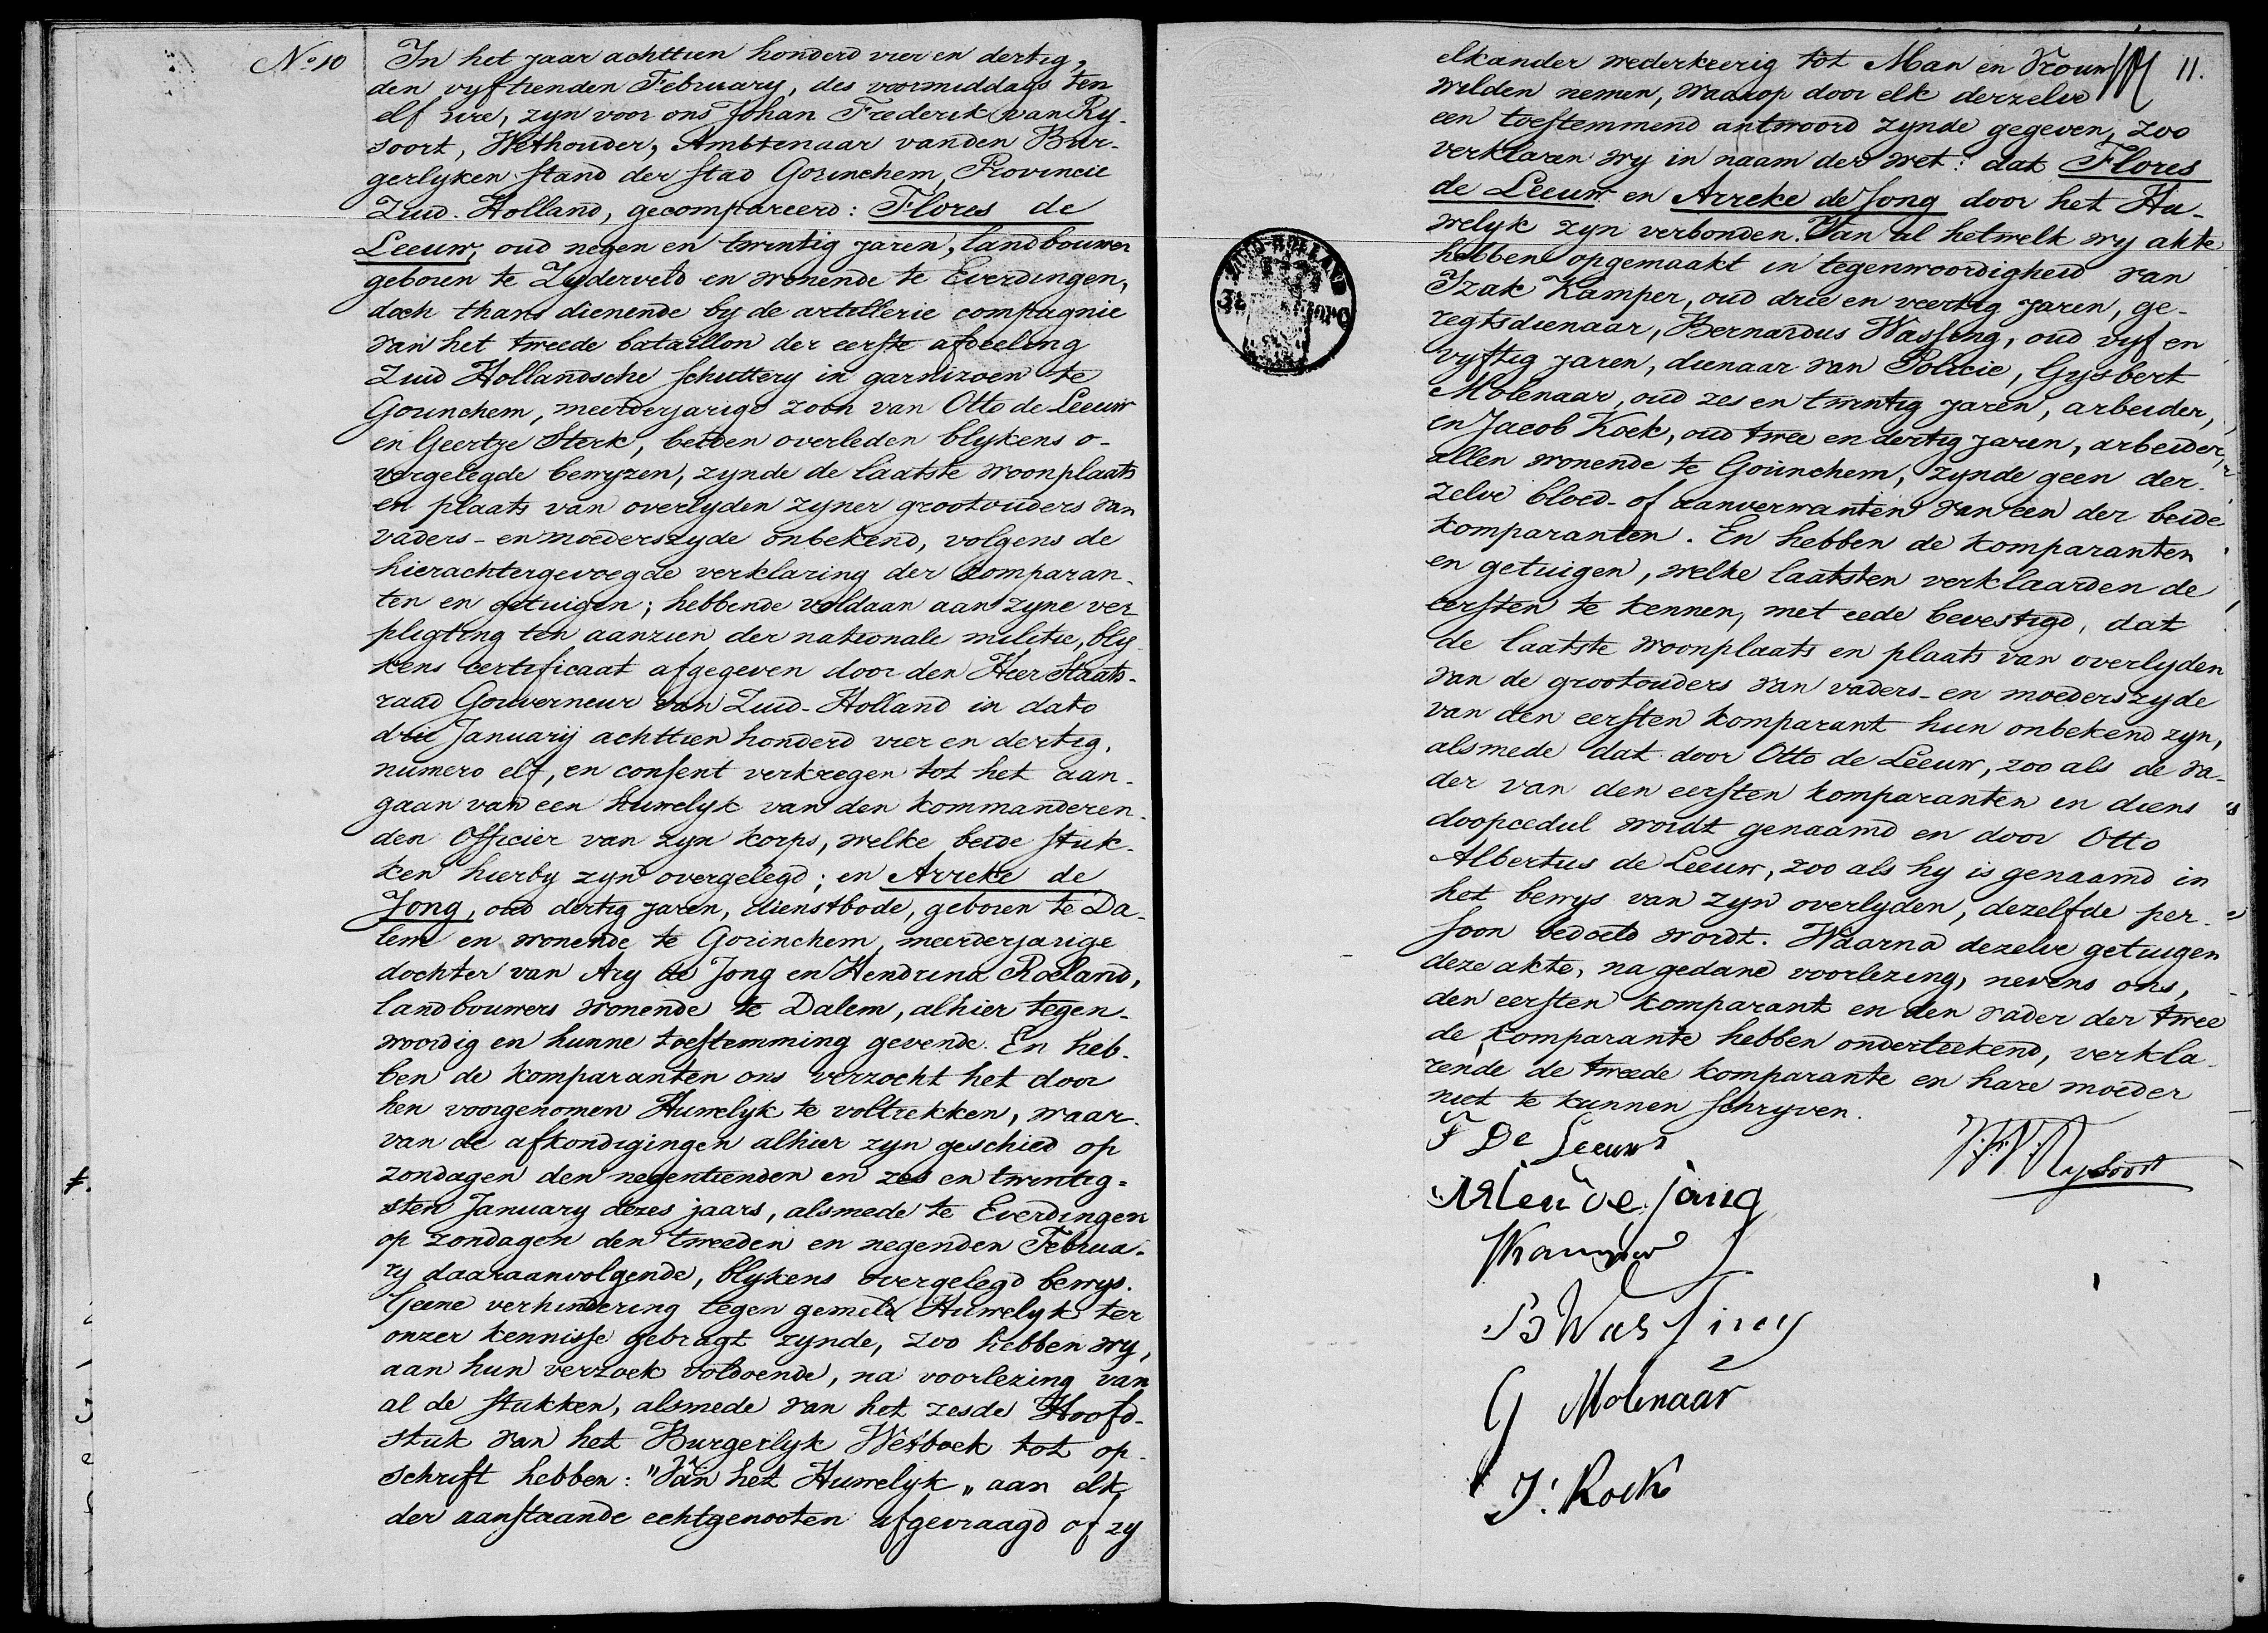 No 10
In het jaar achttien honderd vier en dertig,
den vyftienden February, des voormiddags ten
elf ure, zyn voor ons Johan Frederik van Ry-
soort, Wethouder, Ambtenaar van den Bur-
gerlyken Stand der Stad Gorinchem, Provincie
Zuid-Holland, gecompareerd: Flores de
Leeuw, oud negen en twintig jaren, landbouwer
geboren te Zyderveld en wonende te Everdingen,
doch thans dienende by de artillerie compagnie
van het tweede bataillon der eerste afdeeling
Zuid Hollandsche Schuttery in garnizoen te
Gorinchem, meerderjarige zoon van Otto de Leeuw
en Geertje Sterk, beiden overleden blykens o-
vergelegde bewyzen, zynde de laatste woonplaats
en plaats van overlyden zyner grootouders van
vaders- en moederszyde onbekend, volgens de
hierachtergevoegde verklaring der komparan-
ten en getuigen; hebbende voldaan aan zyne ver
pligting ten aanzien der nationale militie, bly-
kens certificaat afgegeven door den Heer Staats-
raad Gouverneur van Zuid-Holland in dato
drie Januarij achttien honderd vier en dertig,
numero elf, en consent verkregen tot het aan-
gaan van een huwelyk van den kommanderen-
den Officier van zyn korps, welke beide stuk-
ken hierby zyn overgelegd; en Arreke de
Jong, oud dertig jaren, dienstbode, geboren te Da-
lem en wonende te Gorinchem, meerderjarige
dochter van Ary de Jong en Hendrina Roeland,
landbouwers wonende te Dalem, alhier tegen-
woordig en hunne toestemming gevende. En heb-
ben de komparanten ons verzocht het door
hen voorgenomen Huwelyk te voltrekken, waar-
van de afkondigingen alhier zyn geschied op
zondagen den negentienden en zes en twintig-
sten January dezes jaars, alsmede te Everdingen
op zondagen den tweeden en negenden Februa-
ry daaraanvolgende, blykens overgelegd bewys.
Geene verhindering tegen gemeld Huwelyk ter
onzer kennisse gebragt zynde, zoo hebben wy,
aan hun verzoek voldoende, na voorlezing van
al de stukken, alsmede van het zesde Hoofd-
stuk van het Burgerlyk Wetboek tot op-
schrift hebben: "Van het Huwelyk" aan elk
der aanstaande echtgenooten afgevraagd of zy
11.
elkander wederkeerig tot Man en Vrouw
wilden nemen, waarop door elk derzelve
een toestemmend antwoord zynde gegeven, zoo
verklaren wy in naam der wet: dat Flores
de Leeuw en Arreke de Jong door het Hu-
welyk zyn verbonden. Van al hetwelk wy akte
hebben opgemaakt in tegenwoordigheid van
Izak Kamper, oud drie en veertig jaren, ge-
regtsdienaar, Bernardus Wassing, oud vyf en
vyftig jaren, dienaar van Policie, Gysbert
Molenaar, oud zes en twintig jaren, arbeider,
en Jacob Kock, oud twee en dertig jaren, arbeider,
allen wonende te Gorinchem, zynde geen der-
zelve bloed- of aanverwanten van een der beide
komparanten. En hebben de komparanten
en getuigen, welke laatsten verklaarden de
eersten te kennen, met eede bevestigd, dat
de laatste woonplaats en plaats van overlyden
van de grootouders van vaders- en moederszyde
van den eersten komparant hun onbekend zyn,
alsmede dat door Otto de Leeuw, zoo als de va-
der van den eersten komparanten in diens
doopcedul wordt genaamd en door Otto
Albertus de Leeuw, zoo als hy is genaamd in
het bewys van zyn overlyden, dezelfde per-
soon bedoeld wordt. Waarna dezelve getuigen
deze akte, na gedane voorlezing, nevens ons,
den eersten komparant en den vader der twee
de komparante hebben onderteekend, verkla-
rende de tweede komparante en hare moeder
niet te kunnen schryven.
F De Leeuw
de jong
Kamper
B Wassing
G Molenaar
J. Kock
ZUID-HOLLAND